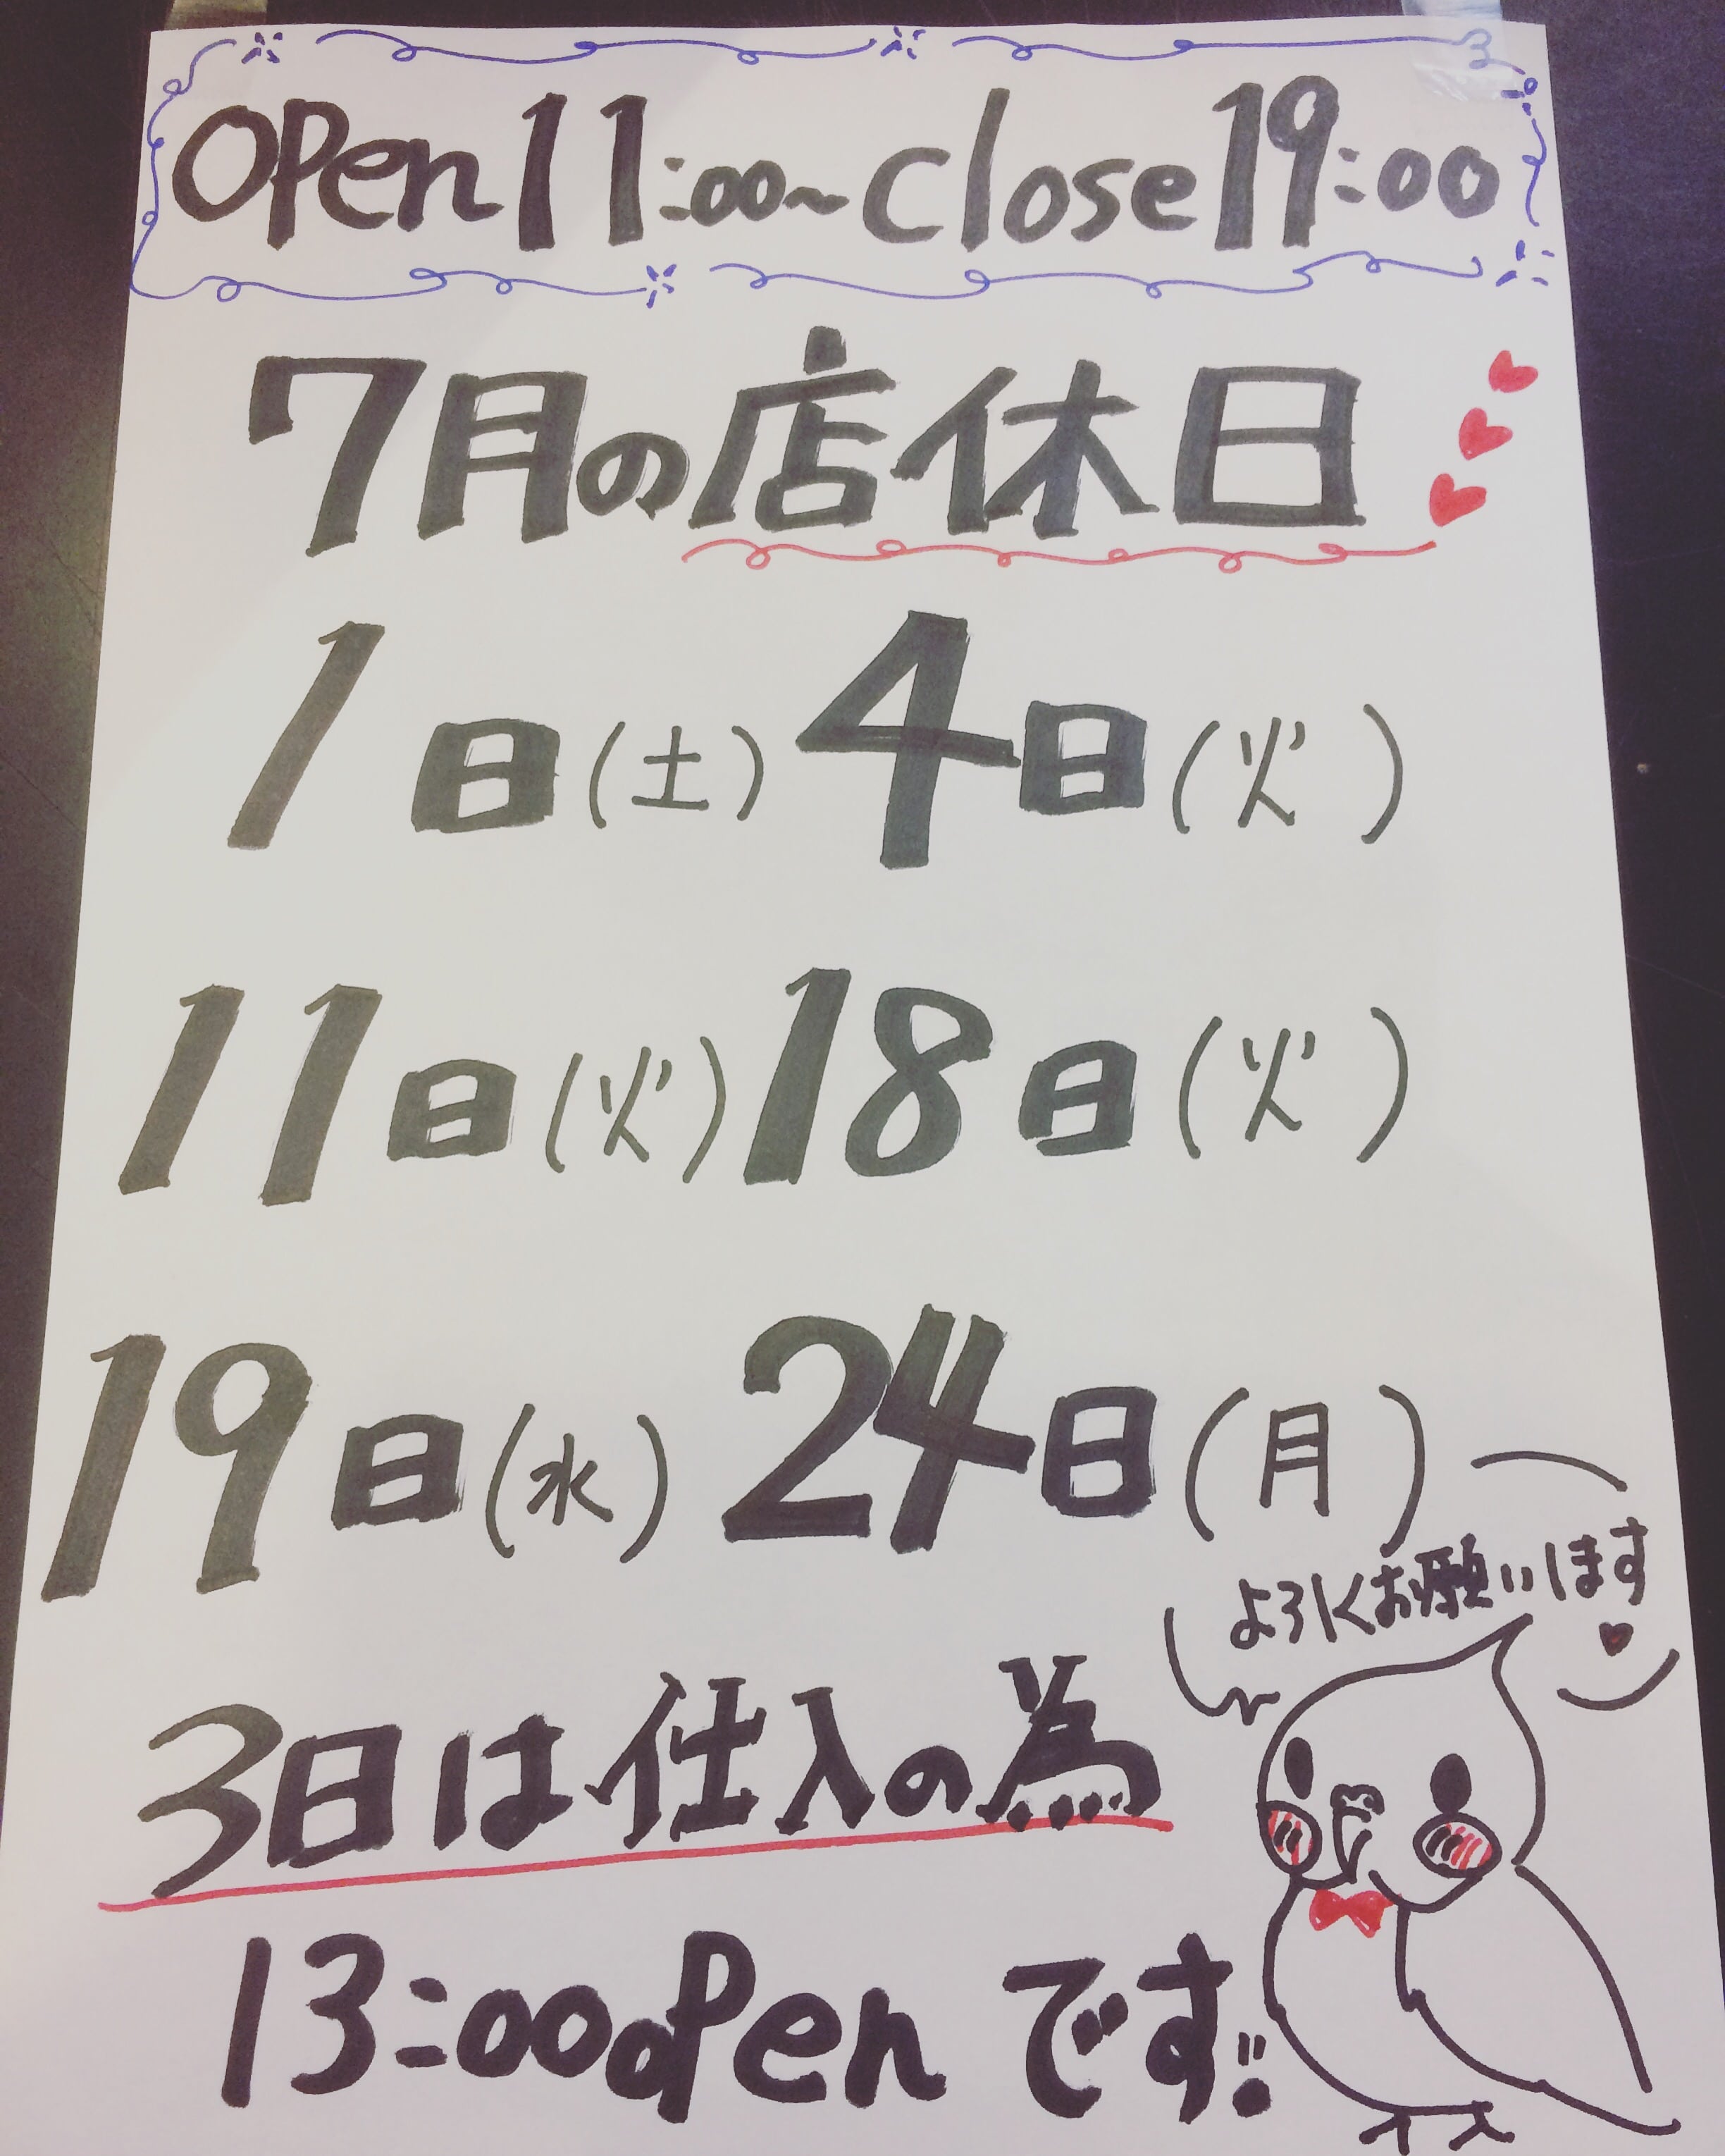 OPen 11:00~close 19:00
7月の店休日
1日(土) 4日(火)
11日(火) 18日(火)
19日(水) 24日(月)
よろしくお願いします
3日は仕入の為
13:00oPen です!!